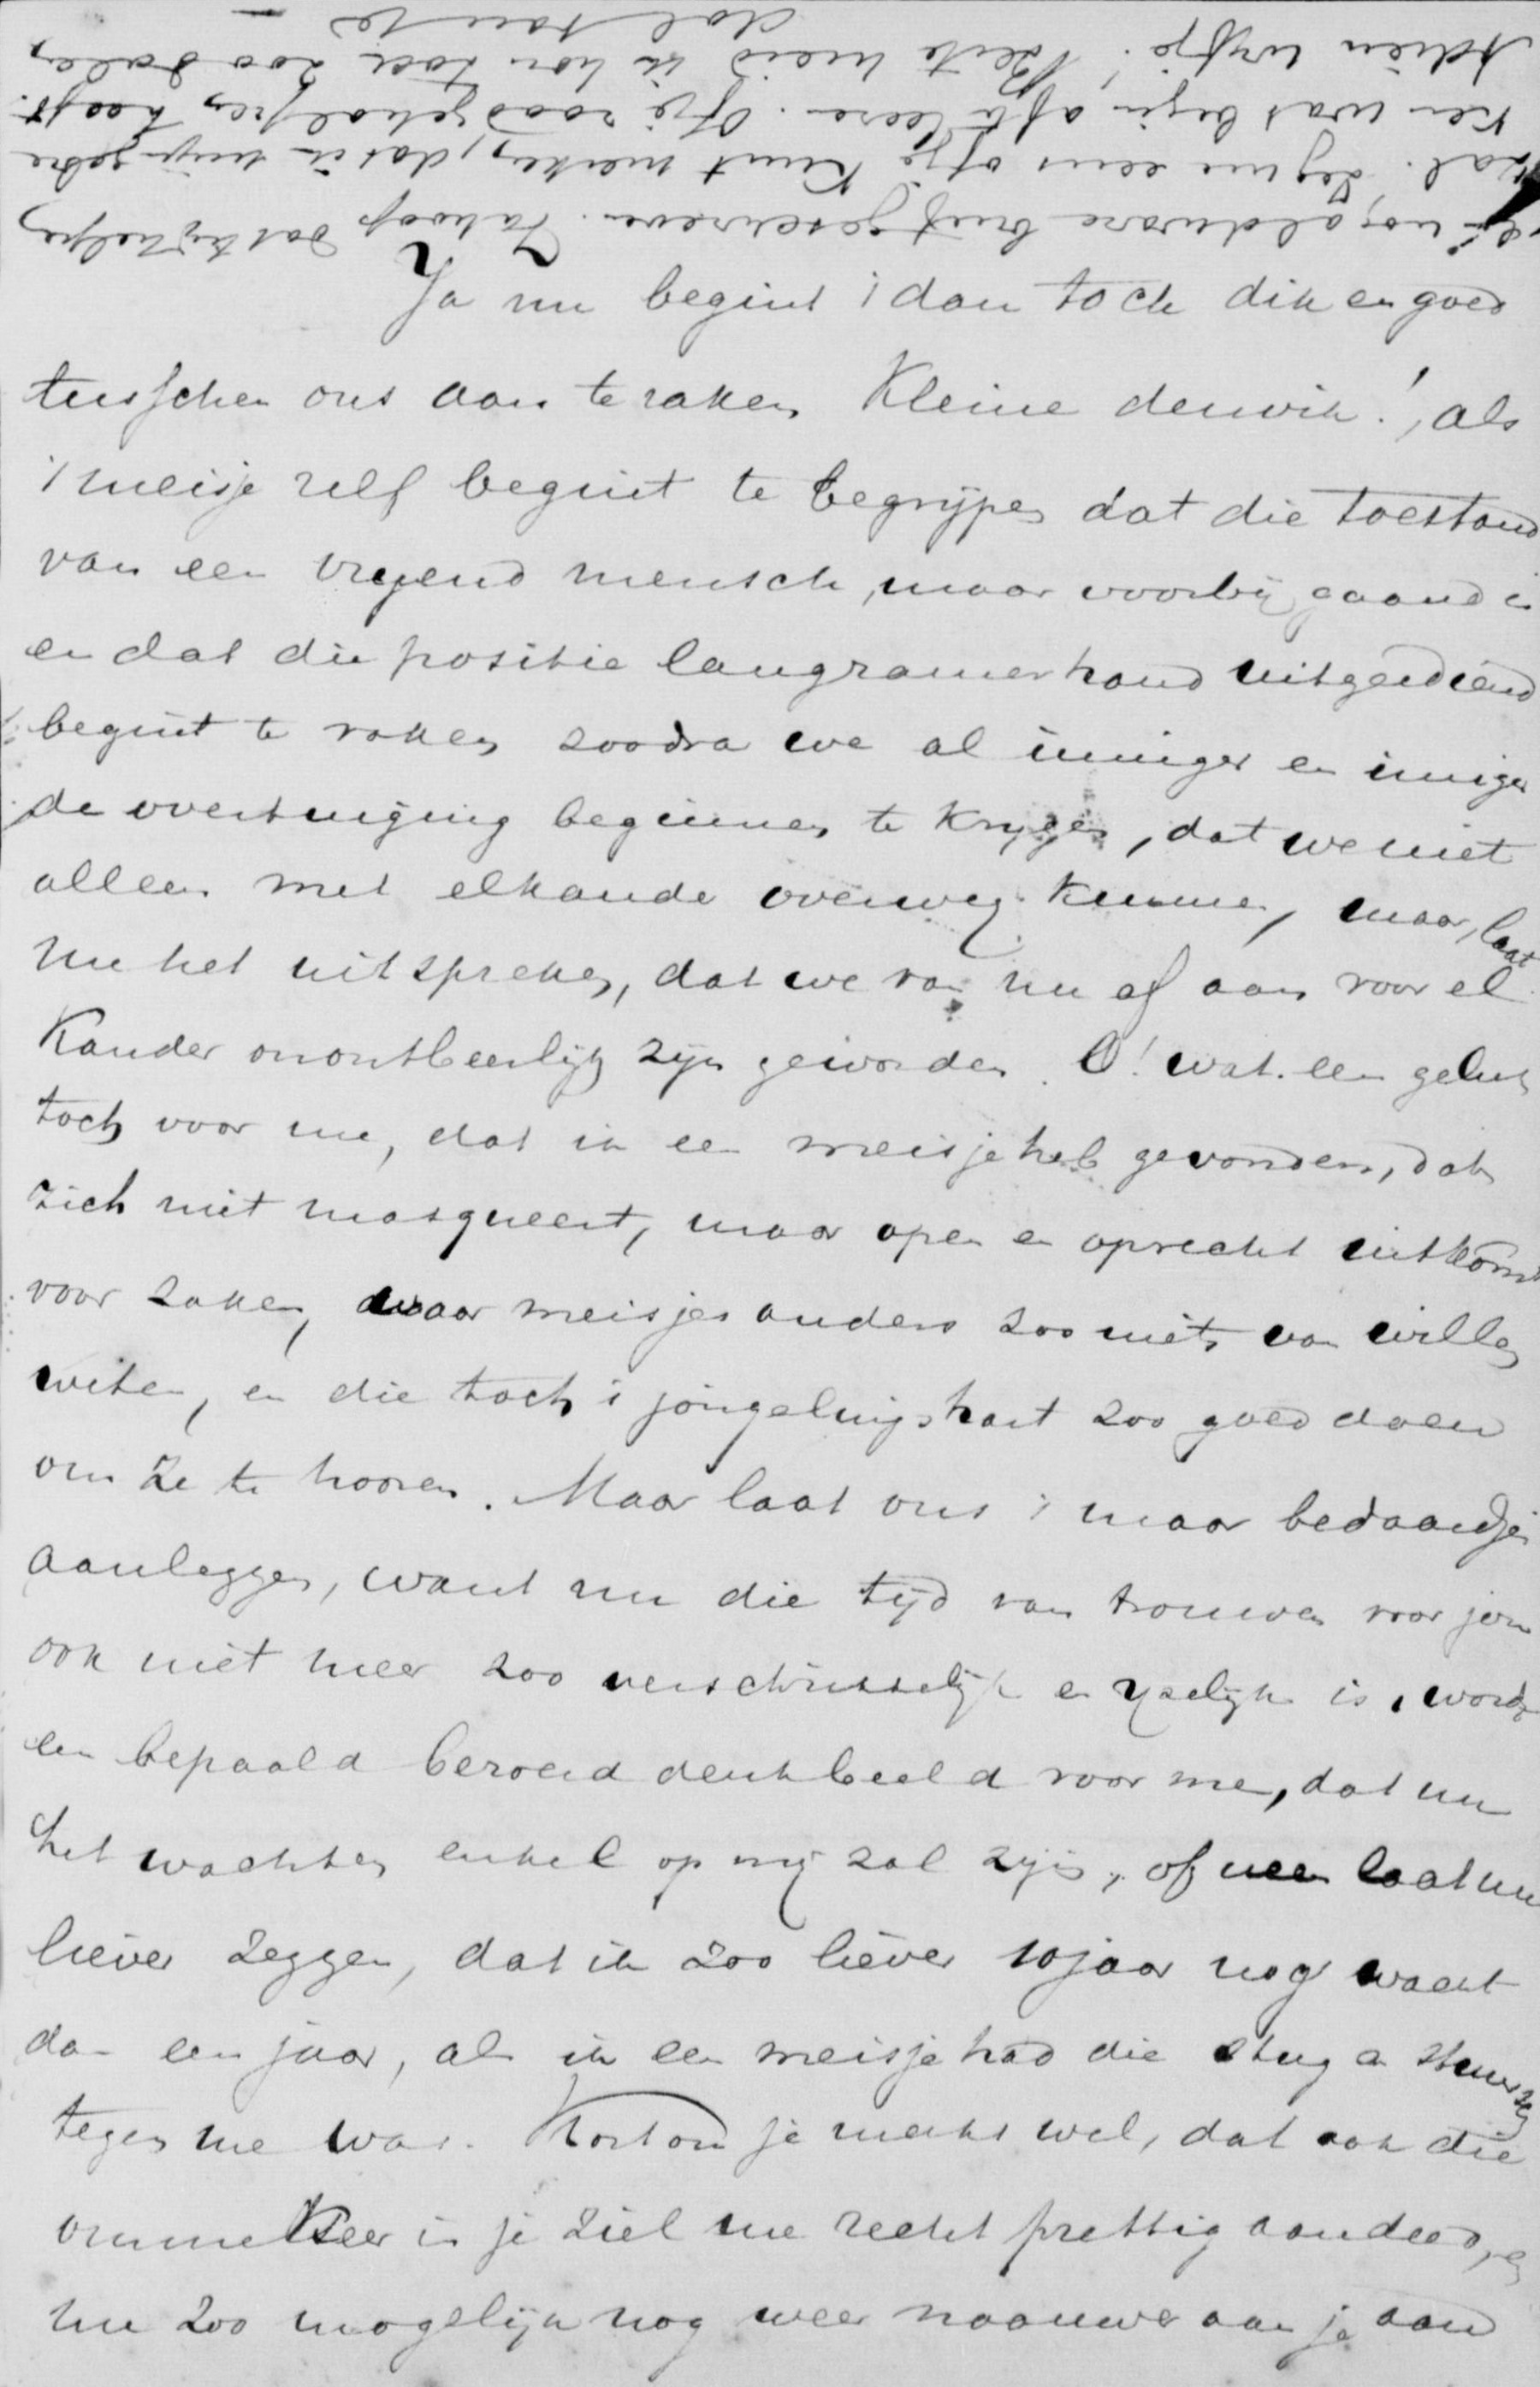 Ja nu begint 't dan toch dik en goed
tusschen ons aan te raken Kleine deuvik!, als
't meisje zelf begint te begrijpen dat die toestand
van een vrijend mensch, maar voorbijgaand is
en dat die positie langzamerhand uitgediend
begint te raken zoodra we al inniger en inniger
de overtuiging beginnen te krijgen, dat we niet
alleen met elkande overweg kunnen, maar, laat
me het uitspreken, dat we van nu af aan voor el
kander onontbeerlijk zijn geworden. O! wat een geluk
toch voor me, dat ik een meisje heb gevonden, dat
zich niet masqueert, maar open en oprecht uitkomt
voor zaken, waar meisjes anders zoo niets van willen
weten, en die toch 't jongelingshart zoo goed doen
om ze te hooren. Maar laat ons 't maar bedaardjes
aanleggen, want nu die tijd van trouwen voor jou
ook niet meer zoo verschrikkelijk en yselijk is, wordt
een bepaald beroerd denkbeeld voor me, dat nu
het wachten enkel op mij zal zijn, of neen laat me
liever zeggen, dat ik zoo liever 10 jaar nog wacht
dan een jaar, als ik een meisje had die stug en stuursch
tegen me was. Kortom je merkt wel, dat ook die
ommekeer in je ziel me recht prettig aandeed, en
me zoo mogelijk nog weer naauwer aan je aan
er nog aldware brief geschreven. Ik hoop dat hij helpen
zal. Zeg me eens of je kunt merken, dat ik mijn gebre
ken wat begin af te leeren. Of je raad geholpen heeft.
Adieu wijfje! Beste meid ik hou toch zoo dolen
dol van je